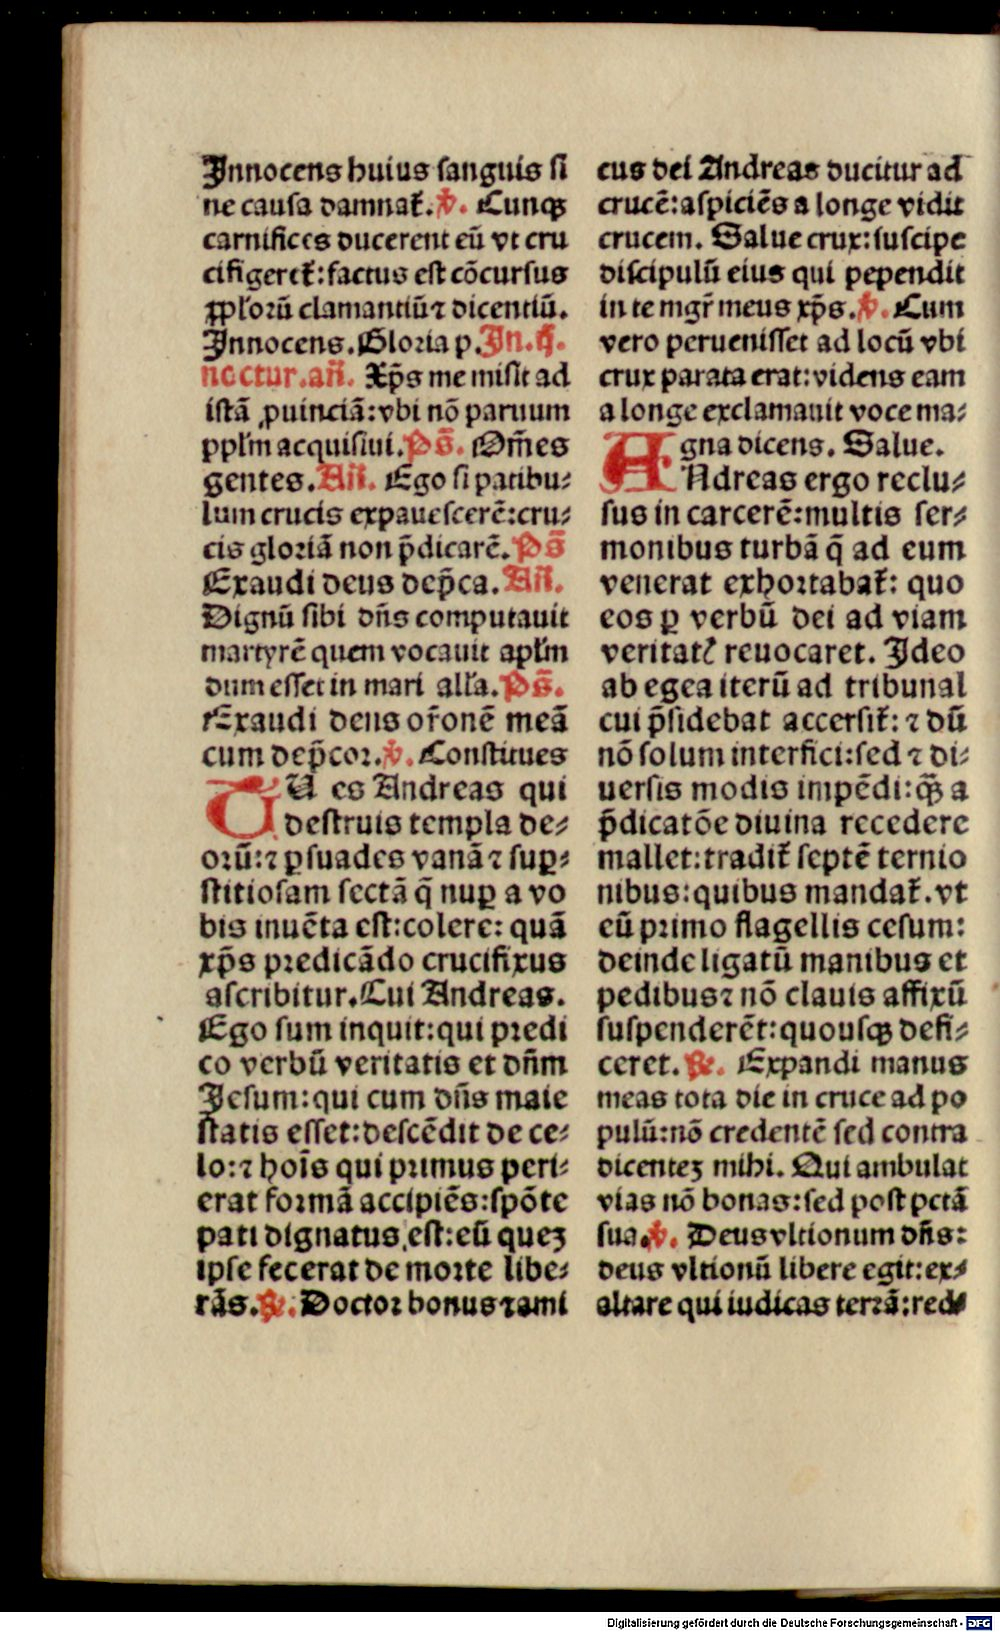 Innocens huius sanguis si
ne causa damnat᷑. ℣. Cunqꝫ
carnifices ducerent eū vt cru
cifigeret᷑: factus est cōcursus
ꝓpl'orū clamantiū ⁊ dicentiū.
Innocens. Gloria p. In .ij.
noctur. an̄. Xp̄s me misit ad
istā ꝓuinciā: vbi nō paruum
ppl'm acquisiui. Ps̄. Om̄es
gentes. An̄. Ego si patibu⸗
lum crucis expauescerē: cru⸗
cis gloriā non p̄dicarē. Ps̄
Exaudi deus dep̄ca. An̄.
Dignū sibi dn̄s computauit
martyrē quem vocauit apl'm
dum esset in mari all'a. Ps̄.
Exaudi deus or̄onē meā
cum dep̄cor. ℣. Constitues
TU es Andreas qui
destruis templa de⸗
orū: ⁊ ꝑsuades vanā ⁊ suꝑ⸗
stitiosam sectā q̄ nuꝑ a vo
bis inuēta est: colere: quā
xp̄s predicādo crucifixus
ascribitur. Cui Andreas.
Ego sum inquit: qui predi
co verbū veritatis et dn̄m
Jesum: qui cum dn̄s maie
statis esset: descēdit de ce⸗
lo: ⁊ hoīs qui primus peri⸗
erat formā accipiēs: spōte
pati dignatus est: eū queꝫ
ipse fecerat de morte libe⸗
rās. ℟. Doctor bonus ⁊ ami
cus dei Andreas ducitur ad
crucē: aspiciēs a longe vidit
crucem. Salue crux: suscipe
discipulū eius qui pependit
in te mgr̄ meus xp̄s. ℣. Cum
vero peruenisset ad locū vbi
crux parata erat: videns eam
a longe exclamauit voce ma⸗
gna dicens. Salue.
ANdreas ergo reclu⸗
sus in carcerē: multis ser⸗
monibus turbā q̄ ad eum
venerat exhortabat᷑: quo
eos ꝑ verbū dei ad viam
veritatꝭ reuocaret. Ideo
ab egea iterū ad tribunal
cui p̄sidebat accersit᷑: ⁊ dū
nō solum interfici: sed ⁊ di⸗
uersis modis impēdi: qꝫ̄ a
p̄dicatōe diuina recedere
mallet: tradit᷑ septē ternio
nibus: quibus mandat᷑. vt
eū primo flagellis cesum:
deinde ligatū manibus et
pedibus ⁊ nō clauis affixū
suspenderēt: quousqꝫ defi⸗
ceret. ℟. Expandi manus
meas tota die in cruce ad po
pulū: nō credentē sed contra
dicenteꝫ mihi. Qui ambulat
vias nō bonas: sed post pctā
sua. ℣. Deus vltionum dn̄s:
deus vltionū libere egit: ex⸗
altare qui iudicas terrā: red⸗
Digitalisierung gefördert durch die Deutsche Forschungsgemeinschaft - DFG